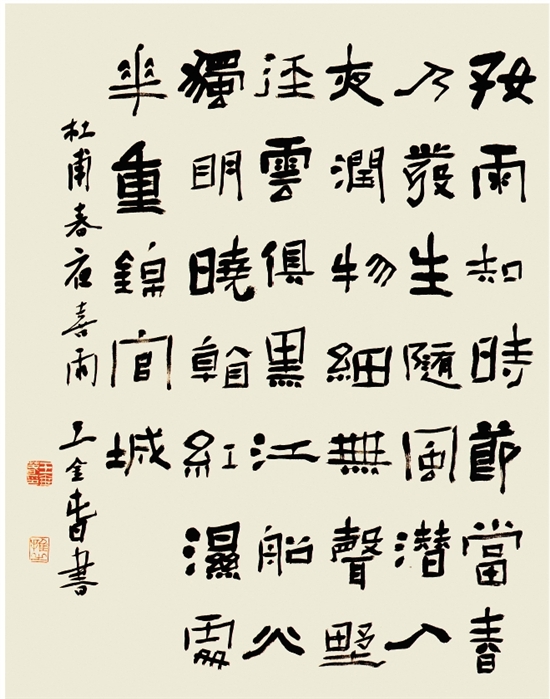 好雨知時節當春
乃發生隨風潛入
夜潤物細無聲野
徑雲俱黑江船火
獨明曉看紅濕處
華重錦官城
杜甫春夜喜雨 王金書